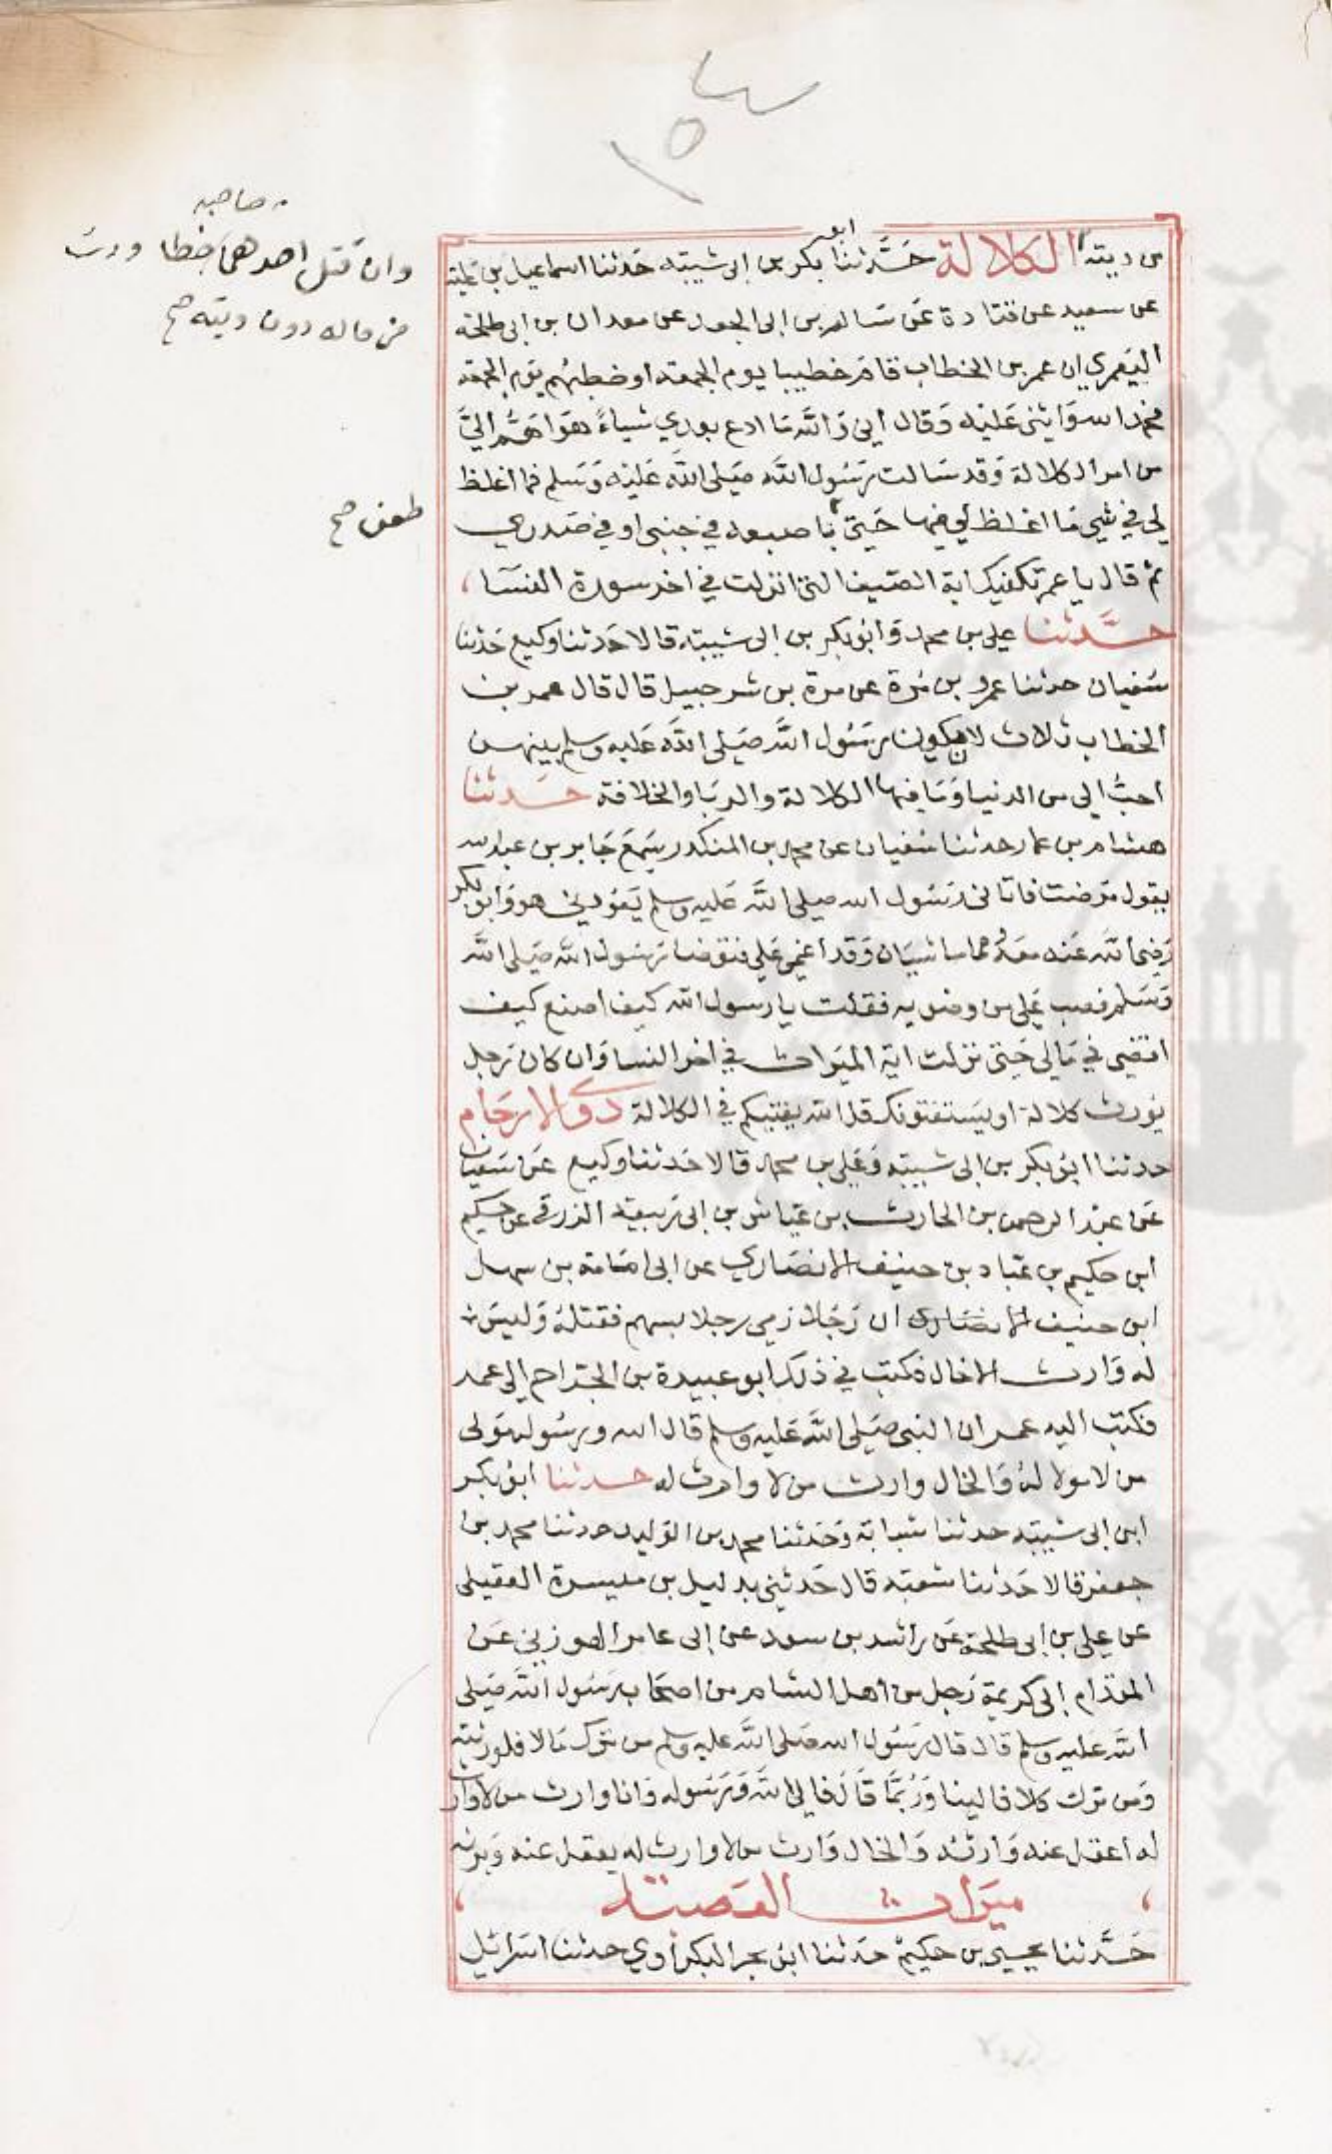 صاحبه
وان قتل احدهما خطا ورث
من ماله دون ديته صح
من ديته الكلالة حدثنا ابو بكر بن ابى شيبته حدثنا اسماعيل بن علية
عن سعيد عن قتادة عن سالم بن ابى الجعد عن معدان بن ابى طلحة
اليعمري ان عمر بن الخطاب قام خطيبا يوم الجمعة او خطبهم يوم الجمعة
فحمد الله واثنى عليه وقال انى والله ما ادع بعدي شياء هو اهم الي
من امر الكلالة وقد سالت رسول الله صلى الله عليه وسلم فما اغلظ
لي في شي ما اغلظ لي فيها حتى باصبعه في جنبى او في صدري
طعن صح
ثم قال يا عمر تكفيك اية الصيف التى انزلت في اخر سورة النسا
حدثنا علي بن محمد وابو بكر بن ابى شيبته قالا حدثنا وكيع حدثنا
سفيان حدثنا عمرو بن مرة عن مرة بن شرحبيل قال قال عمر بن
الخطاب ثلاث لان يكون رسول الله صلى الله عليه وسلم بينهن
احب الي من الدنيا وما فيها الكلالة والربا والخلافة حدثنا
هشام بن عمار حدثنا سفيان عن محمد بن المنكدر سمع جابر بن عبد الله
يقول مرضت فاتانى رسول الله صلى الله عليه وسلم يعودني هو وابو بكر
رضي الله عنه معه هما ماشيان وقد اغمي علي فتوضا رسول الله صلى الله
وسلم فصب علي من وضويه فقلت يا رسول الله كيف اصنع كيف
اقضي في مالي حتى نزلت اية الميراث في اخر النسا وان كان رجل
يورث كلالة او يستفتونك قل الله يفتيكم في الكلالة ذوى الارحام
حدثنا ابو بكر بن ابى شيبته وعلي بن محمد قالا حدثنا وكيع عن سفيان
عن عبد الرحمن بن الحارث بن عياش بن ابى ربيعة الزرقي عن حكيم
ابن حكيم بن عباد بن حنيف الانصاري عن ابى امامة بن سهل
ابن حنيف الانصارى ان رجلا رمى رجلا بسهم فقتله وليس
له وارث الا خال فكتب في ذلك ابو عبيدة بن الجراح الى عمر
فكتب اليه عمر ان النبى صلى الله عليه وسلم قال الله ورسوله مولى
من لا مولا له والخال وارث من لا وارث له حدثنا ابو بكر
ابن ابى شيبته حدثنا شبابة وحدثنا محمد بن الوليد حدثنا محمد بن
جعفر قالا حدثنا شعبته قال حدثنى بديل بن ميسرة العقيلى
عن علي بن ابى طلحة عن راشد بن سعد عن ابى عامر الهوزني عن
المقدام ابى كريمة رجل من اهل الشام من اصحاب رسول الله صلى
الله عليه وسلم قال قال رسول الله صلى الله عليه وسلم من ترك مالا فلورثته
ومن ترك كلا فالينا وربما قال فالى الله ورسوله وانا وارث من لا وارث
له اعقل عنه وارثه والخال وارث من لا وارث له يعقل عنه ويرثه
ميراث العصبته
حدثنا يحيى بن حكيم حدثنا ابو بحر البكراوي حدثنا اسرائيل